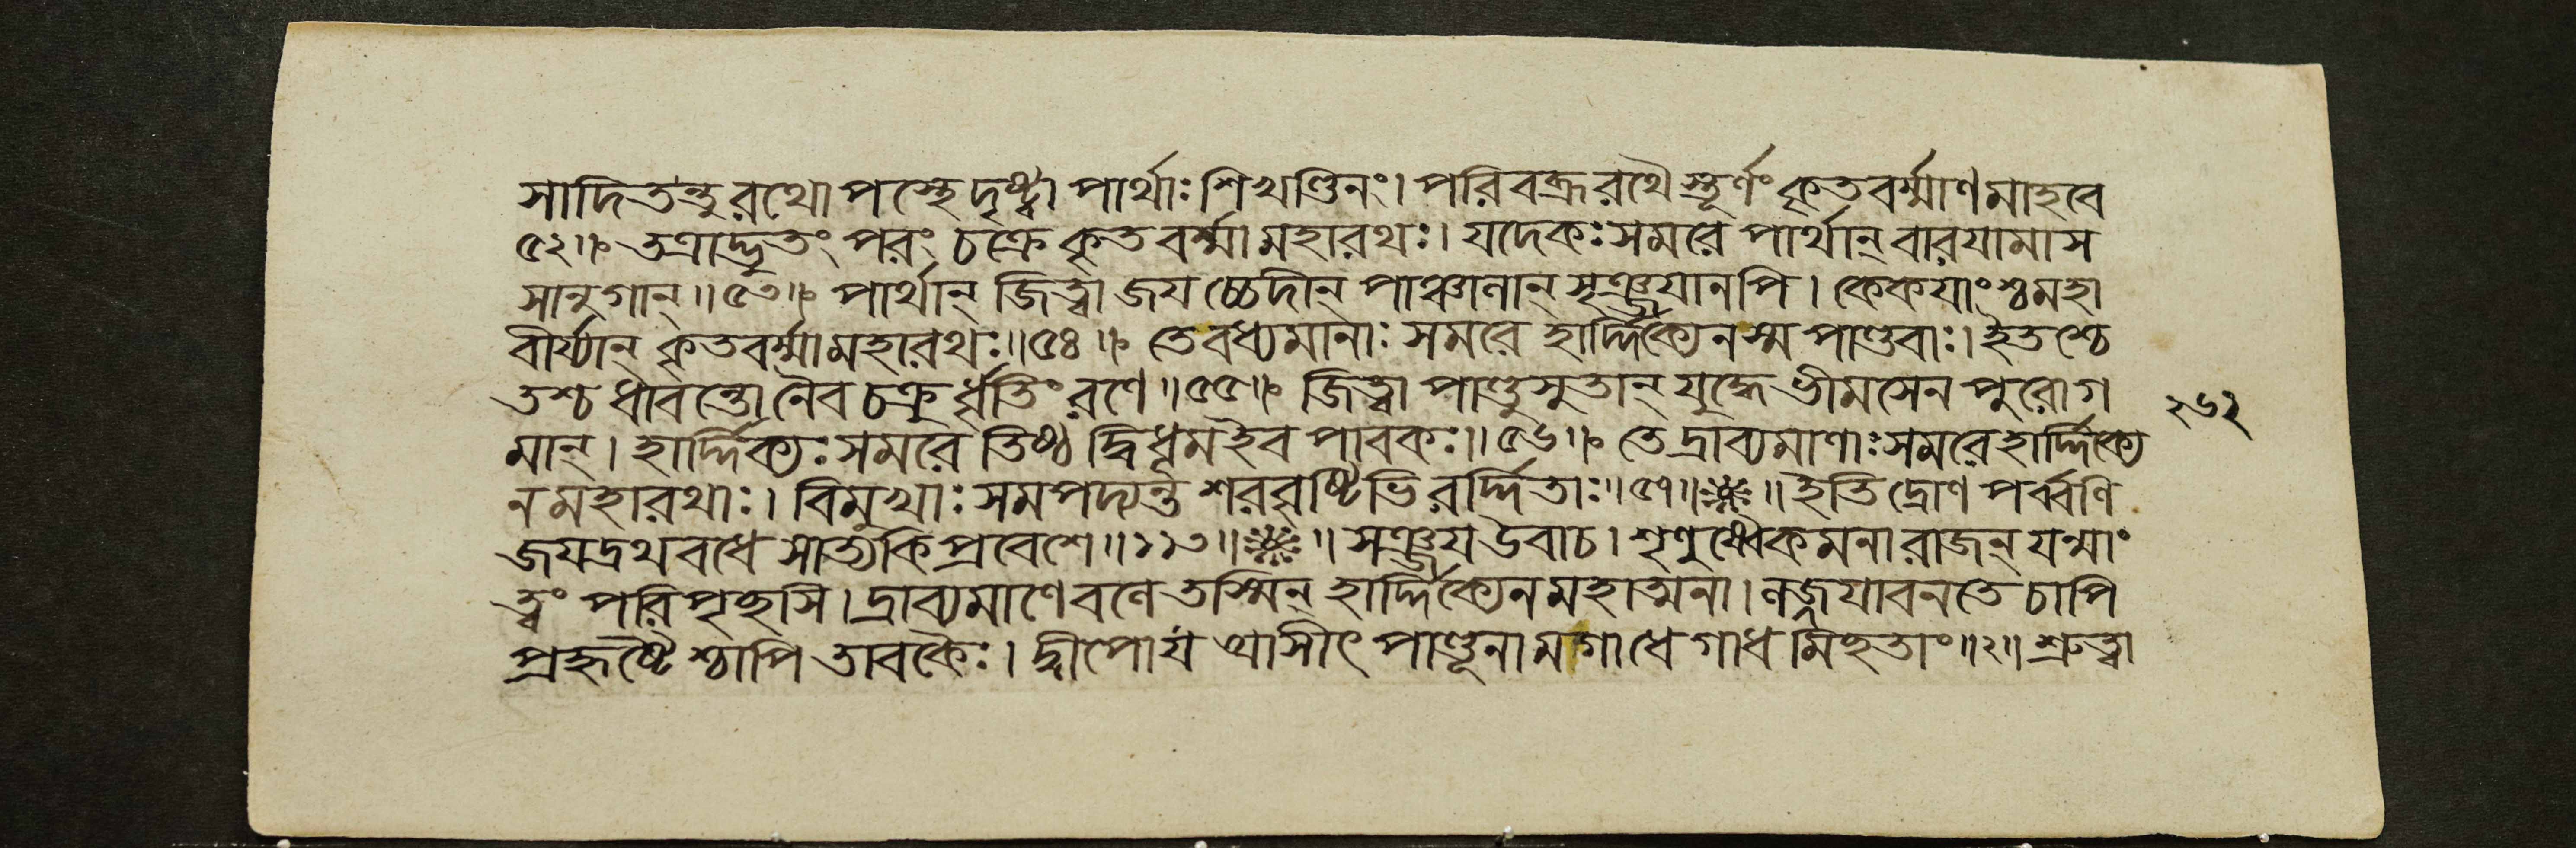 সাদিতন্তু রথোপস্থে দৃষ্ট্বা পার্থাঃ শিখণ্ডিনং। পরিবব্রূ রথৈস্তূর্ণং কৃতবর্ম্মাণমাহবে
৫২॥ তত্রাদ্ভুতং পরং চক্রে কৃতবর্ম্মা মহারথঃ। যদেকঃ সমরে পার্থান্ বারযামাস
সানুগান্॥৫৩॥ পার্থান্ জিত্বা জযচ্চেদীন্ পাঞ্চালান্ সৃঞ্জযানপি। কেকযাংশ্চ মহা
বীর্য্যান্ কৃতবর্ম্মা মহারথঃ॥৫৪॥ তে বধ্যমানাঃ সমরে হার্দ্দিক্যেন স্ম পাণ্ডবাঃ। ইতশ্চে
তশ্চ ধাবন্তো নৈব চক্রুর্ধৃতিং রণে॥৫৫॥ জিত্বা পাণ্ডুসুতান্ যুদ্ধে ভীমসেনপুরোগ
মান্। হার্দ্দিক্যঃ সমরে তিষ্ঠদ্বিধূম ইব পাবকঃ॥৫৬॥ তে দ্রাব্যমাণাঃ সমরে হার্দ্দিক্যে
ন মহারথাঃ। বিমুখাঃ সমপদ্যন্ত শরবৃষ্টিভিরর্দ্দিতাঃ॥৫৭॥ ॥ ইতি দ্রোণপর্ব্বণি
জযদ্রথবধে সাত্যকিপ্রবেশে॥১১৩॥ ॥ সঞ্জয উবাচ। শৃণুষ্বৈকমনা রাজন্ যন্মাং
ত্বং পরিপৃচ্ছসি। দ্রাব্যমাণে বলে তস্মিন্ হার্দ্দিক্যেন মহাত্মনা। লজ্জযাবনতে চাপি
প্রহৃষ্টৈশ্চাপি তাবকৈঃ। দ্বীপো য আসীৎ পাণ্ডূনামগাধে গাধমিচ্ছতাং॥২॥ শ্রুত্বা
২৬২